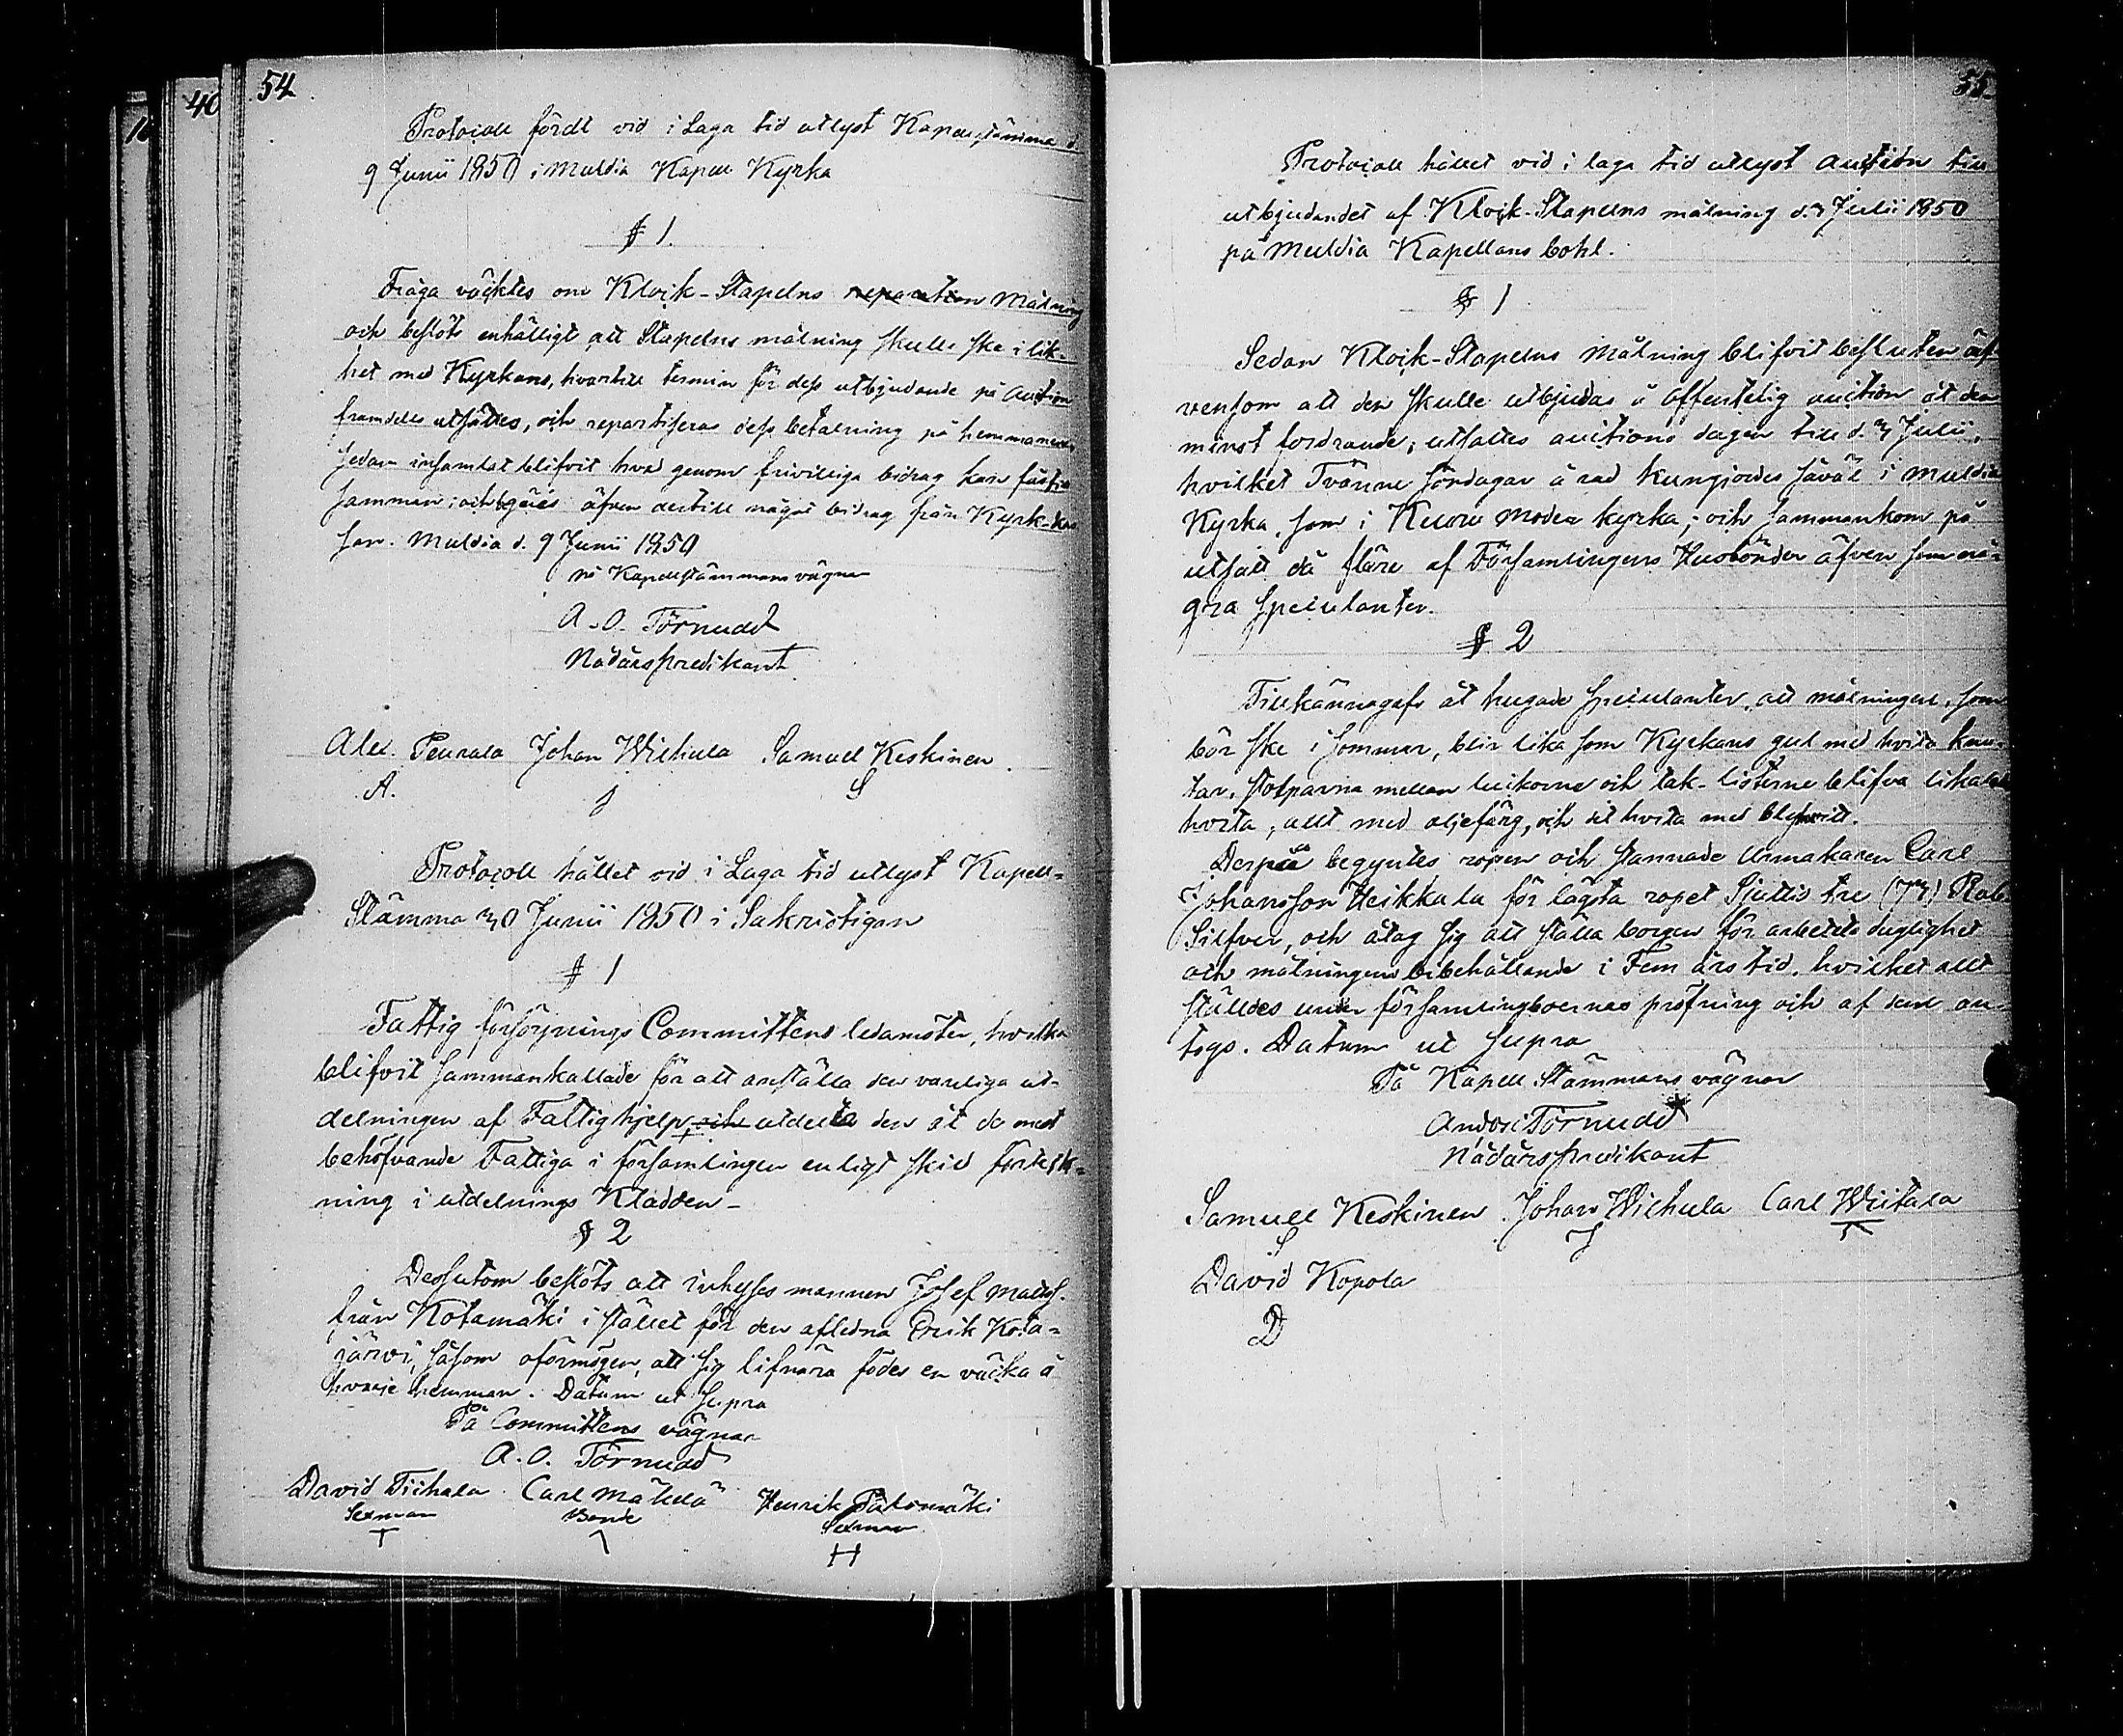 54
40
10
Protocoll fördt vid i Laga tid utlyst Kapellstämma d.
9 Junii 1850 i Muldia Kapell Kyrka
§ 1.
Fråga väcktes om Klock-Stapelns reparation målning
och beslöts enhälligt att Stapelns målning skulle ske i lik-
het med Kyrkans, hvartill termin för dess utbjudande på Auction
framdeles utsättes, och repartiseras dess betalning på hemmanen,
sedan insamlat blifvit hvad genom frivilliga bidrag kan fås till
samman; och äfven dertill något bidrag från Kyrk-kas
san. Muldia d. 9 Junii 1850
på Kapellstämmans vägnar
A. O. Törnudd
Nådårspredikant.
Alex. Peurala Johan Wiehula Samuel Keskinen
A. J S
Protocoll hållet vid i Laga tid utlyst Kapell-
Stämma 30 Junii 1850 i Sakristigan
§ 1
Fattig försörjnings Committens ledamöter, hvilka
blifvit sammankallade för att anställa den vanliga ut-
delningen af Fattighjelp, och utdelte den åt de mest
behöfvande Fattiga i församlingen enligt skild förteck-
ning i utdelnings Kladden-
§ 2
Dessutom beslöts att inhysses mannen Josef Matss.
från Kotamäki i stället för den aflidna Erik Kota-
järvi, såsom oförmögen, att sig lifnära födes en väcka å
hvarje hemman. Datum ut Supra
På Committens vägnar
A. O. Törnudd
David Tiihala Carl Mäkelä Henrik Palomäki
Sexman Bonde Sexman
T ^ H
55.
Protocoll hållet vid i laga tid utlyst auction till
utbjudandet af Klock-Stapelns målning d. 3 Julii 1850
på Muldia Kapellans bohl.
§ 1
Sedan Klock-Stapelns målning blifvit besluten äf-
vensom att den skulle utbjudas å offentelig auction åt den
minst fordrande; utsattes auctions dagen till d. 3 Julii,
hvilket Tvänne söndagar å rad kungjordes såväl i Muldia
Kyrka, som i Keuru Moder kyrka; och sammankom på
utsatt då flåre af Församlingens Husbönder äfven som nå-
gra speculanter.
§ 2
Tillkännagafs åt hugade speculanter, att målningen, som
bör ske i sommar, blir lika som Kyrkans gul med hvita kan-
tar, stolparna mellan luckorna och tak-listerne blifva likaledes
hvita, allt med oljefärg, och det hvita med blyhvitt.
Derpå begyntes ropen och stannade Urmakaren Carl
Johansson Heikkala för lägsta ropet Sjuttio tre (73) Rub.
Silfver, och åtag sig att ställa borgen för arbetets duglighet
och målningens bibehållande i Fem års tid, hvilket allt
ställdes under församlingboernas pröfning och af dem an-
togs. Datum ut supra
På Kapell Stämmans vägnar
Törnudd
Nådårspredikant
Samuel Keskinen Johan Wiehula Carl Wiitala
S J ^
David Kopola
D